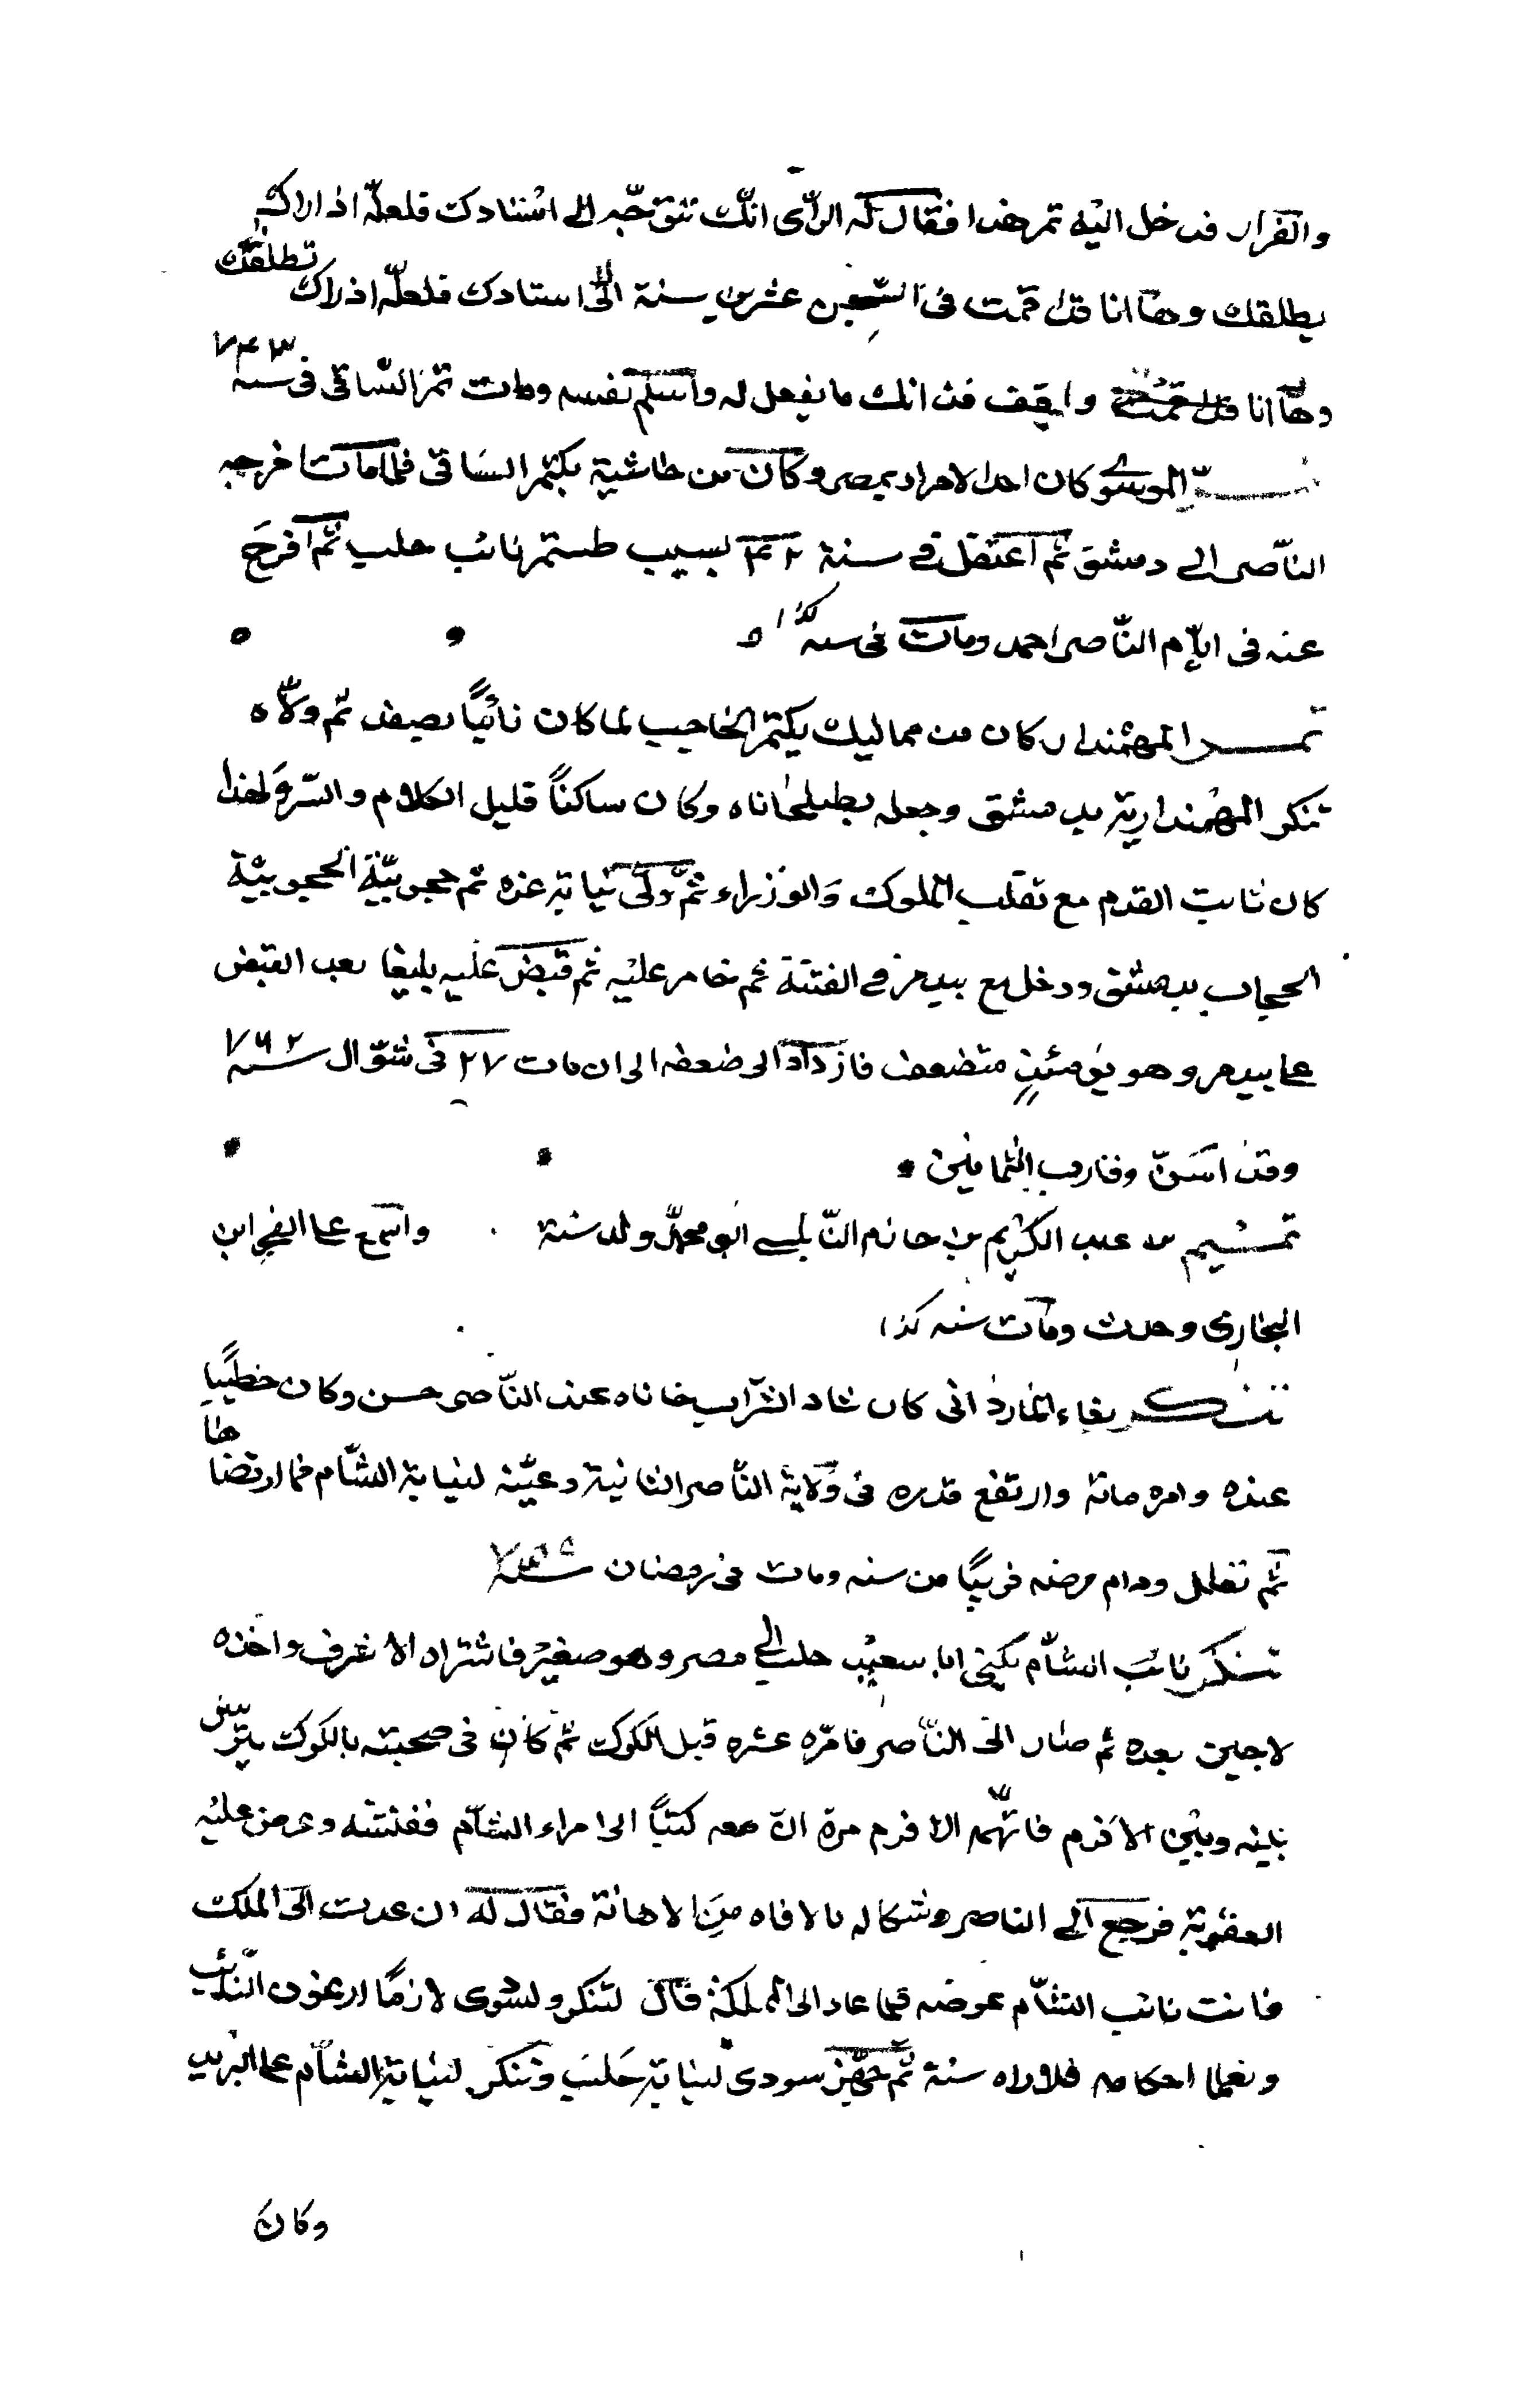 والفرار فدخل اليه تمر هذا فقال له الرأى انك تتوجه الى استادك فلعله اذا راك
يطلقك وها انا قد قمت فى السجن عشرين سنة الى استادك فلعله اذ راك تطلقك
وها انا قد قمت واقف فى ذلك ما يفعل له واسلم نفسه ومات تمر الساقى فى سنة ٧٤٣
تمر الموسوى كان احد الامراء بمصر وكان من حاشية بكتمر الساقى فلما مات اخرجه
الناصر الى دمشق ثم اعتقل فى سنة ٤٢ بسبب طستمر نائب حلب ثم افرج
عنه فى ايام الناصر احمد ومات فى سنة كذا ٥
تمر المهمندار كان من مماليك بكتمر الحاجب لما كان نائبا بصفد ثم ولاه
تنكز المهمندارية بدمشق وجعله بطبلخاناه وكان ساكنا قليل الكلام والشر فلهذا
كان ثابت القدم مع تقلب الملوك والوزراء ثم ولى نيابة غزه ثم حجوبية الحجوبية
الحجاب بدمشق ودخل مع بيدمر فى الفتنة ثم خامر عليه ثم قبض عليه يلبغا بعد القبض
على بيدمر وهو يومئذ متضعف فازداد الى ضعفه الى ان مات ٢٧ فى شوال سنة ٧٦٢
وقد اسن وقارب الثمانين
تمــيم بن عبد الكريم بن حازم النابلسى ابو محمد ولد سنة واسمع على الفخر ابن
البخارى وحدث ومات سنه كذا
تنكز بغاء الماردانى كان شاد الشراب خاناه عند الناصر حسن وكان خطيبا
عنده وامره مائة وارتفع قدره فى ولاية الناصر الثانية وعينه لنيابة الشام فما ارتضا
ثم تعلل ودام مرضه قريبا من سنه ومات فى رمضان
تنكز نائب الشام يكنى ابا سعيد جلب الى مصر وهو صغير فاشتراه الاشرف واخذه
لاجين بعده ثم صار الى الناصر فامره عشره قبل الكوك ثم كان فى صحبته بالكوك يترسل
بينه وبين الافرم فاتهمه الافرم مرة ان معه كتبا الى امراء الشام ففتشه وعرض عليه
العقوبة فرجع الى الناصر وشكا له ما لاقاه من الاهانة فقال له ان عدت الى الملك
فانت نائب الشام عوضه فلما عاد الى المملكة قال لتنكز ولسودى لازما ارغون النائب
وتعلما احكامه فلازماه سنة ثم جهز سودى لنيابة حلب وتنكز لنيابة الشام على البريد
وكان